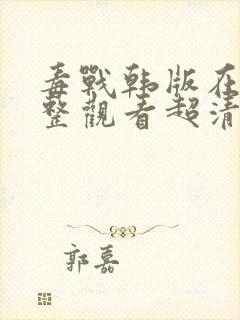 毒戰韩版在
整觀看超清
郭嘉